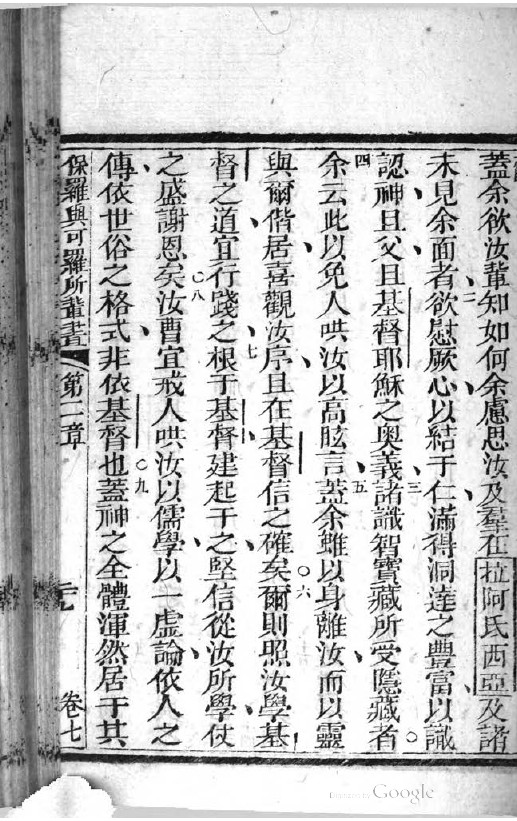 蓋余欲汝輩知如何余慮思汝及羣在拉阿氏西亞及諸
未見余面者二欲慰厥心以結于仁滿得洞達之豐富以識
認神且父且基督耶穌之奧義三諸識智寶藏所受隱藏者
四余云此以免人哄汝以高眩言五蓋余雖以身離汝而以靈
與爾偕居喜觀汝序且在基督信之確矣六爾則照汝學基
督之道宜行踐之七根于基督建起于之堅信從汝所學仗
之盛謝恩矣八汝曹宜戒人哄汝以儒學以一虛論依人之
傳依世俗之格式非依基督也九蓋神之全體渾然居于其
保羅與可羅所輩書 第二章 卷七
Google